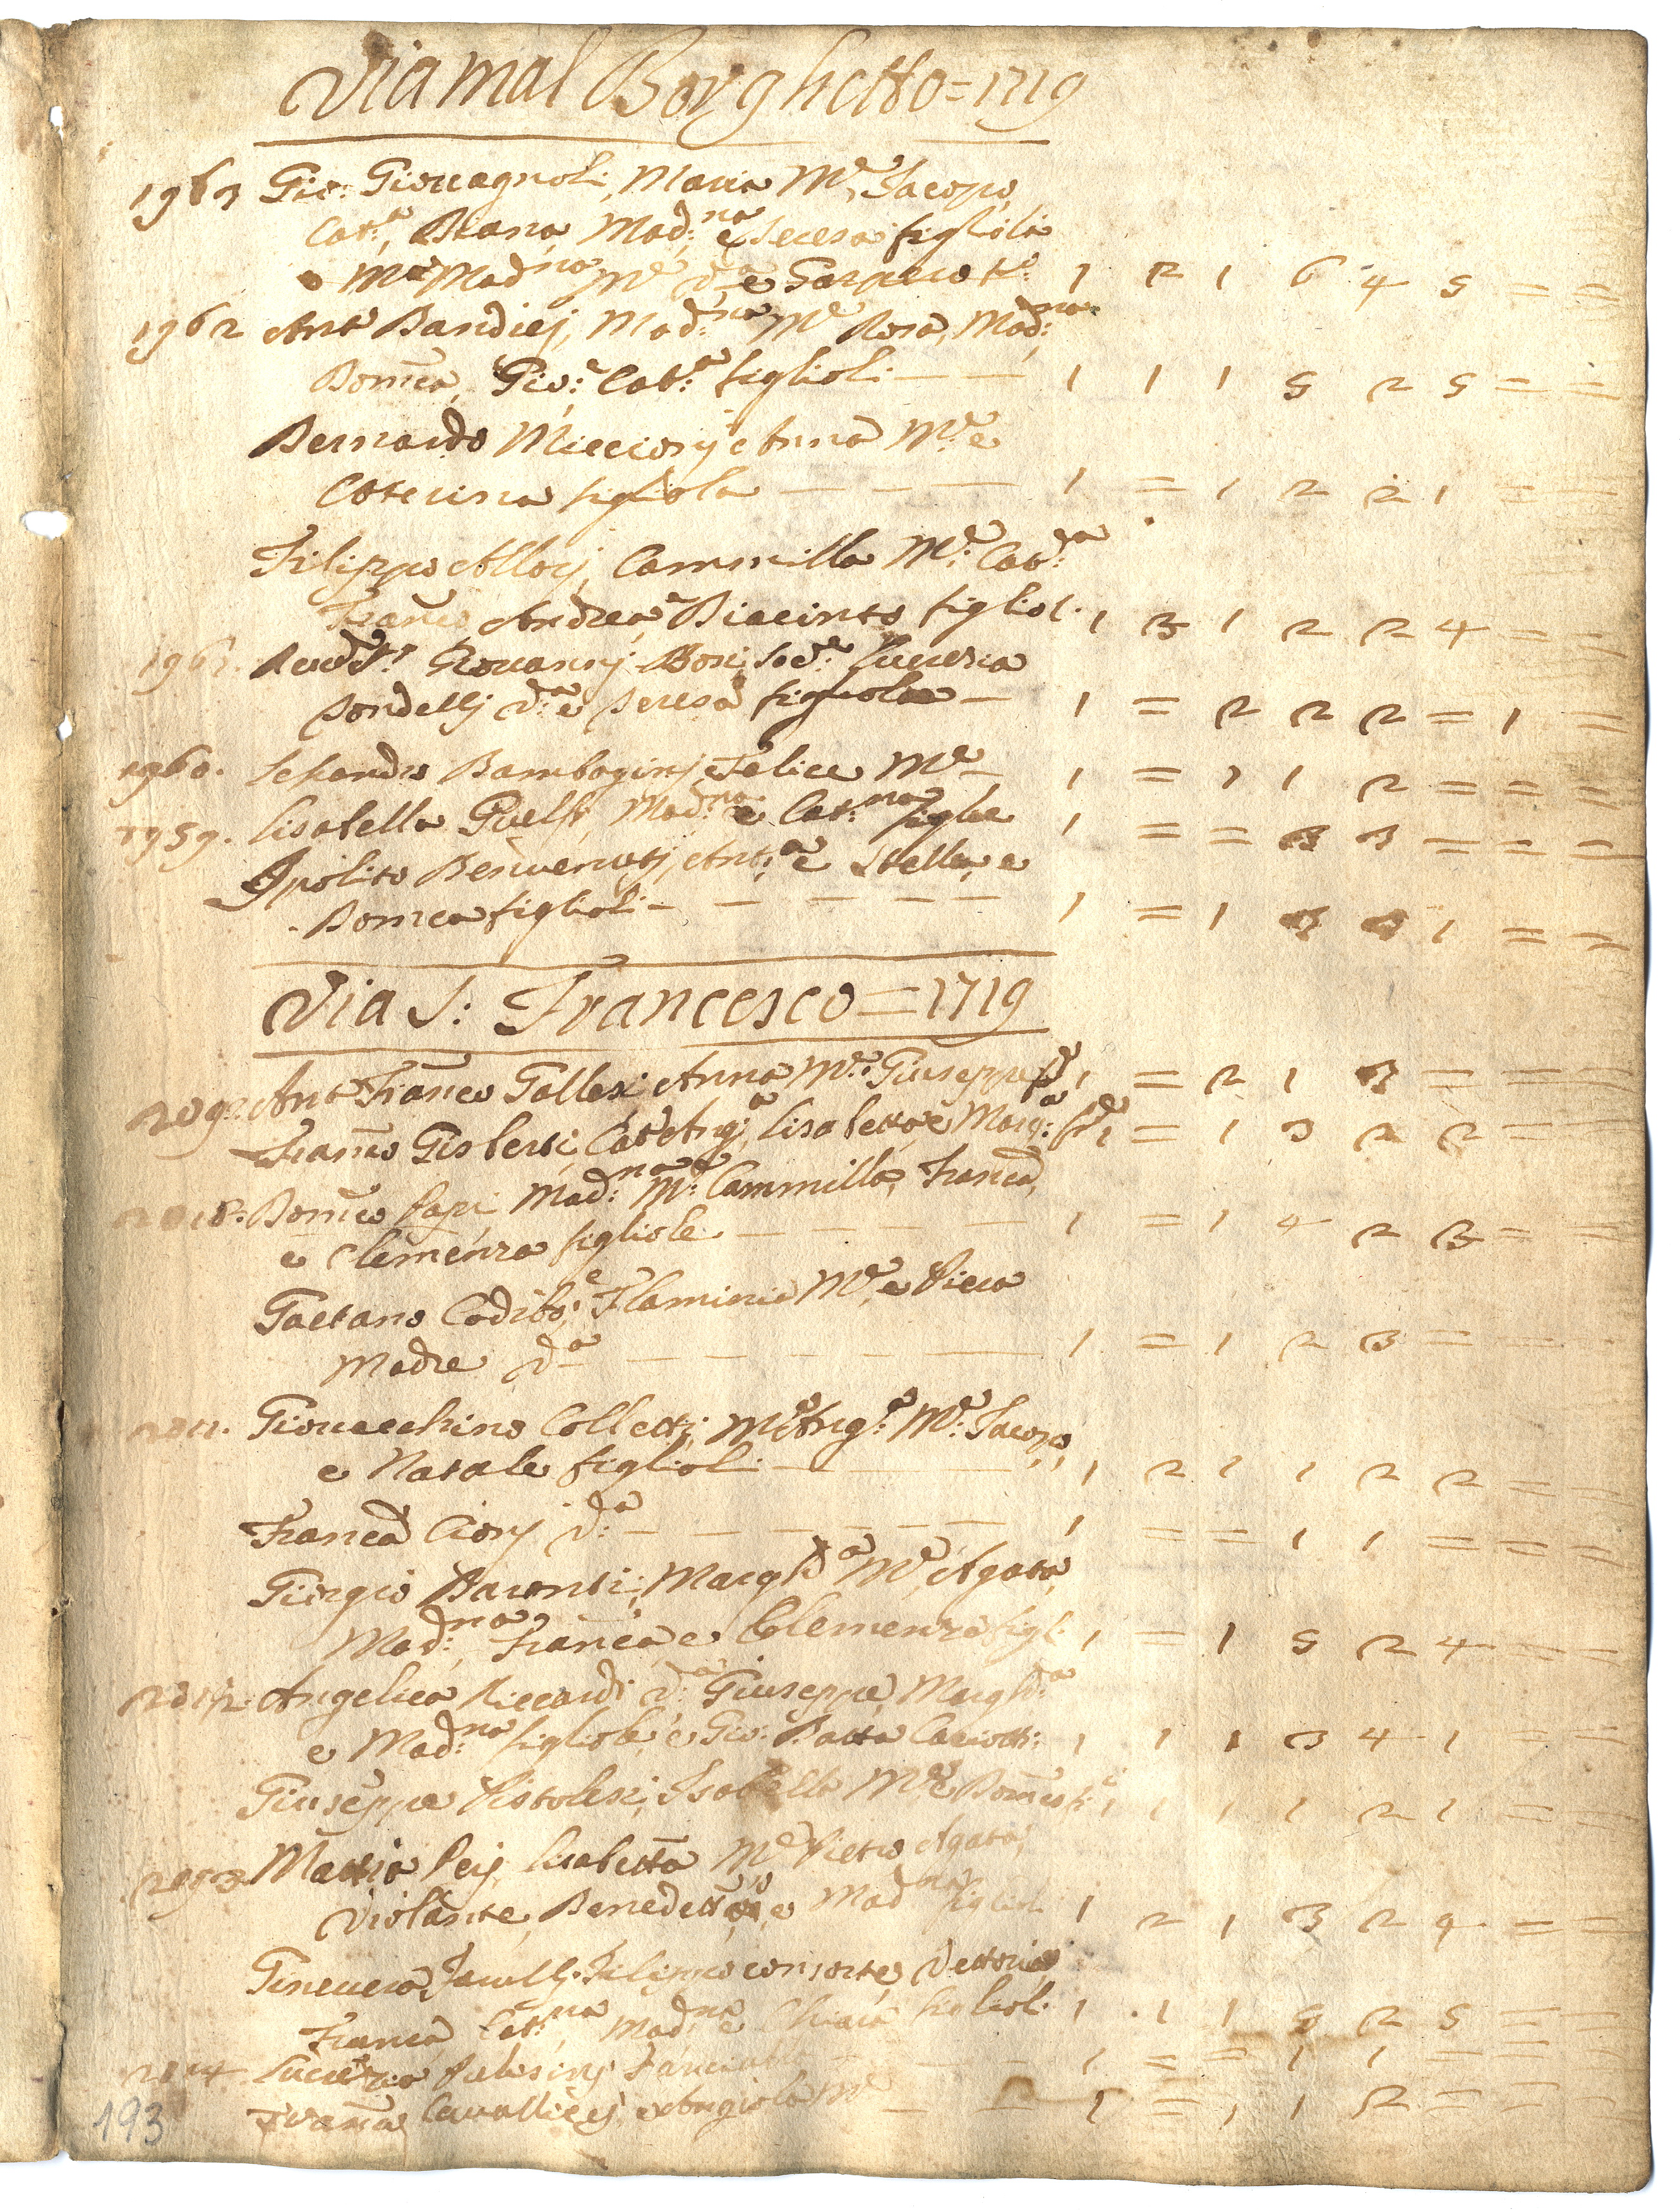 Via mal Borghetto = 1719
1963 Gio: Giouagnoli, Maria M.e Jacopo,
Cat.a, Diana, Mad.na e Teresa figlioli
e M.a Mad.na M.e d.a e Gasparo f.o 1 2 1 6 4 5 = =
1962 Ant.o Bandiej, Mad.na M.e Rosa, Mad.na
Dom.ca, Gio: Cat.a figlioli — — 1 1 1 5 2 5 = =
Bernardo Miccionj e Anna M.e e
Caterina figliola — — — 1 = 1 2 2 1 = =
Filippo Allorj, Cammilla M.e Cat.a
Fran.co Andrea, Diacinto figliol. 1 3 1 2 2 4 = =
1961. Giouannj Bosi Lucrezia
d.a e Teresa figliola — 1 = 2 2 2 = 1 =
1960. Bamboginj e Felice M.e — 1 = 1 1 2 = = =
1959. Lisabella Guelfi, Mad.na e Cat.na figlie 1 = = 3 3 = = =
Ipolito Benvenutj, Ant.a e Stella, e
Dom.ca figlioli — — — — — 1 = 1 3 3 1 = =
Via S: Francesco = 1719
Ant.o Franco Gallesi Anna M.e Giuseppe 1 = 2 1 3 = = =
Fran.co Gisberti, Cat.a Ang.a Lisabetta e Marg.a 1 = 1 3 2 2 = =
2018. Dom.co Papi Mad.na M.e Cammilla, Fran.ca
e Clemenza figliole — — — — 1 = 1 4 2 3 = =
Gaetano Codibò, Flaminia M.e e Piera
Madre d.a — — — — — 1 = 1 2 3 = = =
2011. Giouacchino Colletti, M.a Ang.a M.e Jacopo,
e Natale figlioli — — — 1 2 1 1 2 2 = =
Fran.ca Ciorj d.a — — — — — 1 = = 1 1 = = =
Giorgio Baronti, Margh.a M.e Agata,
Mad.na, Fran.ca e Clemenza figl. 1 = 1 5 2 4 = =
2012 Angelica Riccardi d.a Giuseppe, Margh.a
e Mad.na figliole, e Gio: Batta Cariotti: 1 1 1 3 4 1 = =
Giuseppe Pistolesi, Isabella M.e e Dom.co f. 1 1 1 1 2 1 = =
Mattio Perj, Lisabetta M.e Pietro Agata,
Violante, Benedetto, e Mad.na figlioli 1 2 1 3 2 4 = =
Gineuera Filippo consorte, Vettoria
Fran.ca Cat.na Mad.na e Chiara figlioli 1 1 1 5 2 5 = =
2014 Lucrezia — — — 1 = = 1 1 = = =
Fran.co Caualliej e Angiola M.e — — 1 = 1 1 2 = = =
193